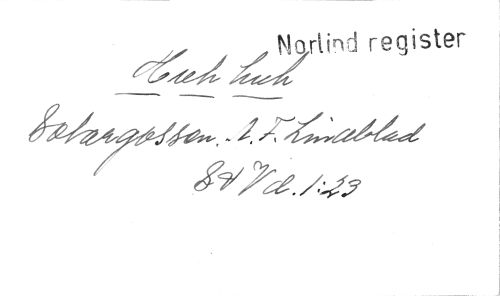 Norlind register
Hieh hieh
Sotargossen. A. F. Lindeblad
S H V d. 1:23